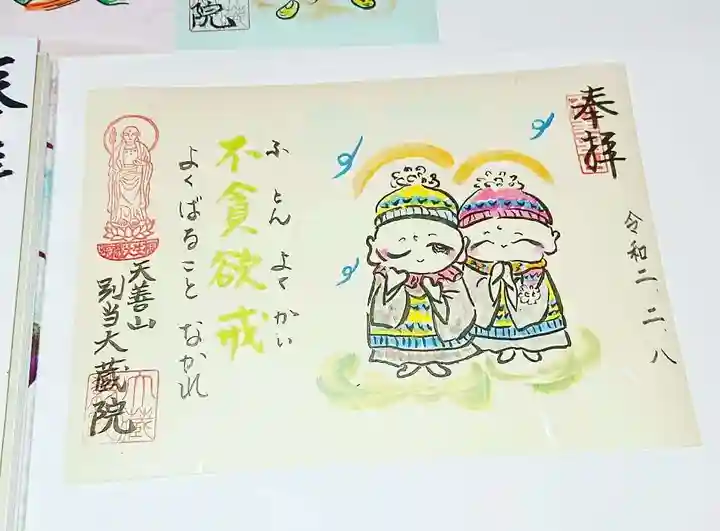 奉拝
令和二、二、八
ふとんよくかい
不貪欲戒
よくばること なかれ
天善山
別当大蔵院
院